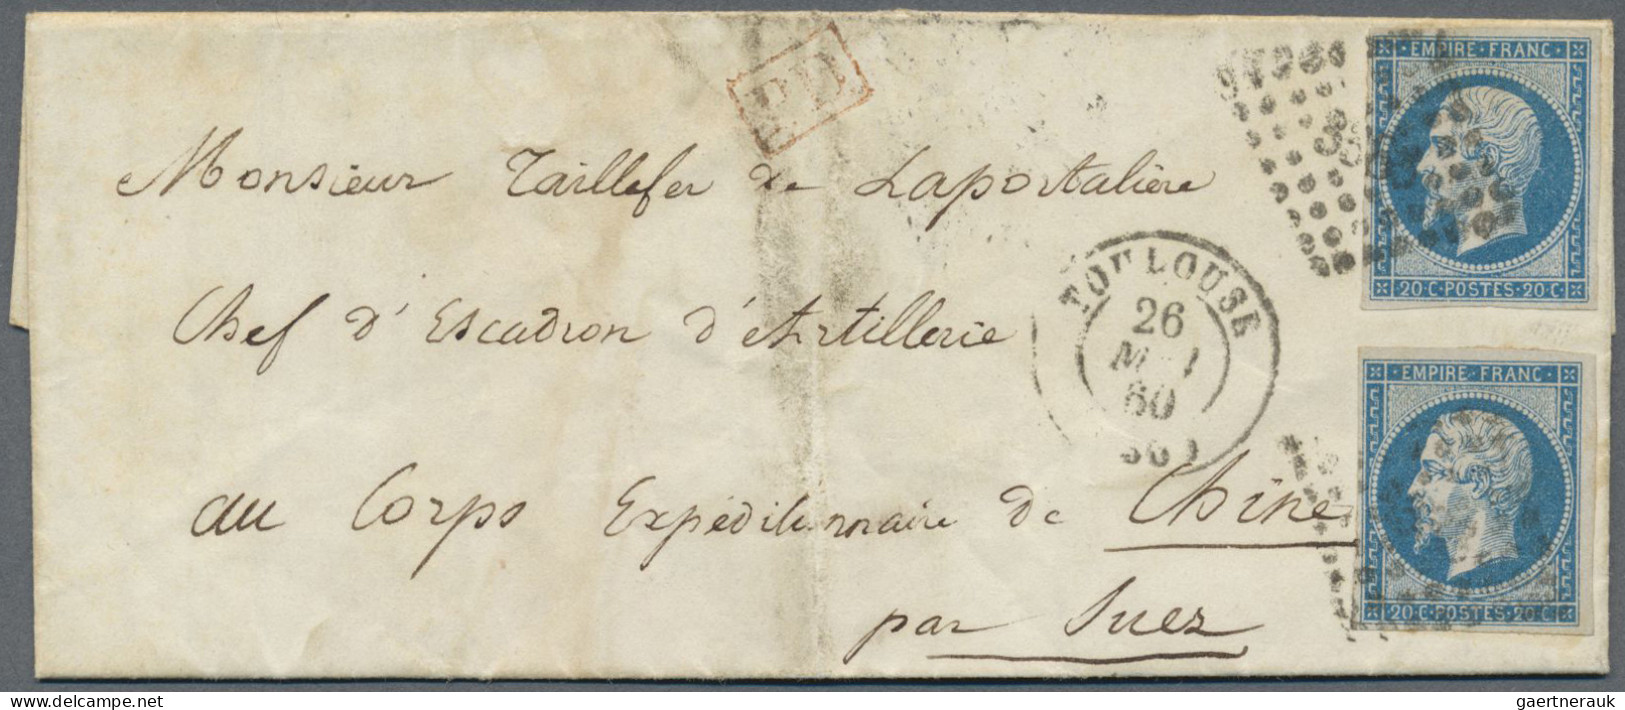 P.D.
Monsieur Taillefer de Laportalière
Chef d'Escadron d'Artillerie
au Corps Expéditionnaire de Chine
par Suez
TOULOUSE
26
60
EMPIRE·FRANC
20·C·POSTES·20·C
EMPIRE·FRANC
20·C·POSTES·20·C
gaertnerauk